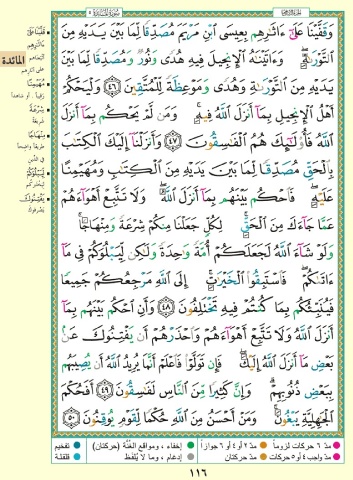 وَقَفَّيْنَا عَلَىٰٓ ءَاثَٰرِهِم بِعِيسَى ٱبْنِ مَرْيَمَ مُصَدِّقًا لِّمَا بَيْنَ يَدَيْهِ مِنَ
ٱلتَّوْرَىٰةِ ۖ وَءَاتَيْنَٰهُ ٱلْإِنجِيلَ فِيهِ هُدًى وَنُورٌ وَمُصَدِّقًا لِّمَا بَيْنَ
يَدَيْهِ مِنَ ٱلتَّوْرَىٰةِ وَهُدًى وَمَوْعِظَةً لِّلْمُتَّقِينَ ٤٦ وَلْيَحْكُمْ
أَهْلُ ٱلْإِنجِيلِ بِمَآ أَنزَلَ ٱللَّهُ فِيهِ ۚ وَمَن لَّمْ يَحْكُم بِمَآ أَنزَلَ
ٱللَّهُ فَأُو۟لَٰٓئِكَ هُمُ ٱلْفَٰسِقُونَ ٤٧ وَأَنزَلْنَآ إِلَيْكَ ٱلْكِتَٰبَ
بِٱلْحَقِّ مُصَدِّقًا لِّمَا بَيْنَ يَدَيْهِ مِنَ ٱلْكِتَٰبِ وَمُهَيْمِنًا
عَلَيْهِ ۖ فَٱحْكُم بَيْنَهُم بِمَآ أَنزَلَ ٱللَّهُ ۖ وَلَا تَتَّبِعْ أَهْوَآءَهُمْ
عَمَّا جَآءَكَ مِنَ ٱلْحَقِّ ۚ لِكُلٍّ جَعَلْنَا مِنكُمْ شِرْعَةً وَمِنْهَاجًا ۚ
وَلَوْ شَآءَ ٱللَّهُ لَجَعَلَكُمْ أُمَّةً وَٰحِدَةً وَلَٰكِن لِّيَبْلُوَكُمْ فِى مَآ
ءَاتَىٰكُمْ ۖ فَٱسْتَبِقُوا۟ ٱلْخَيْرَٰتِ ۚ إِلَى ٱللَّهِ مَرْجِعُكُمْ جَمِيعًا
فَيُنَبِّئُكُم بِمَا كُنتُمْ فِيهِ تَخْتَلِفُونَ ٤٨ وَأَنِ ٱحْكُم بَيْنَهُم بِمَآ
أَنزَلَ ٱللَّهُ وَلَا تَتَّبِعْ أَهْوَآءَهُمْ وَٱحْذَرْهُمْ أَن يَفْتِنُوكَ عَنۢ
بَعْضِ مَآ أَنزَلَ ٱللَّهُ إِلَيْكَ ۖ فَإِن تَوَلَّوْا۟ فَٱعْلَمْ أَنَّمَا يُرِيدُ ٱللَّهُ أَن يُصِيبَهُم
بِبَعْضِ ذُنُوبِهِمْ ۗ وَإِنَّ كَثِيرًا مِّنَ ٱلنَّاسِ لَفَٰسِقُونَ ٤٩ أَفَحُكْمَ
ٱلْجَٰهِلِيَّةِ يَبْغُونَ ۚ وَمَنْ أَحْسَنُ مِنَ ٱللَّهِ حُكْمًا لِّقَوْمٍ يُوقِنُونَ ٥٠
المائدة
مُهَيْمِنًا
شِرْعَةً
شريعة
مِنْهَاجًا
لِيَبْلُوَكُمْ
يَفْتِنُوكَ
مدّ ٦ حركات لزوماً
مدّ ٢ أو ٤ أو ٦ جوازاً
إخفاء، ومواقع الغُنَّة (حركتان)
تفخيم
مدّ واجب ٤ أو ٥ حركات
مدّ حركتان
إدغام، وما لا يُلفَظ
قلقلة
١١٦